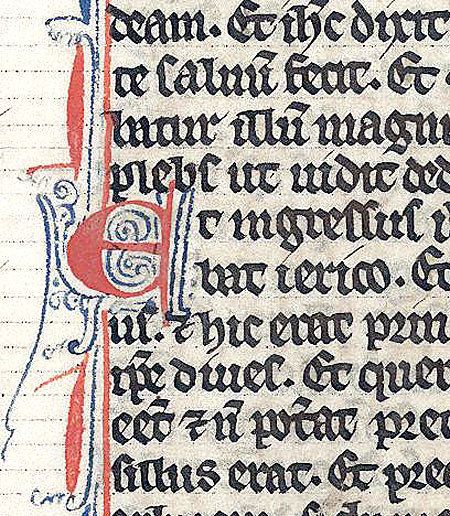 deam. Et ih̄c dixit
te saluū fecit. Et
batur illū magni
plebs ut uidit ded
Et ingressus
bat ierico. Et
⁊ hic erat prin
ip̄e diues. Et quer
eēt ⁊ n̄ pot̄at pre
sillus erat. Et prec